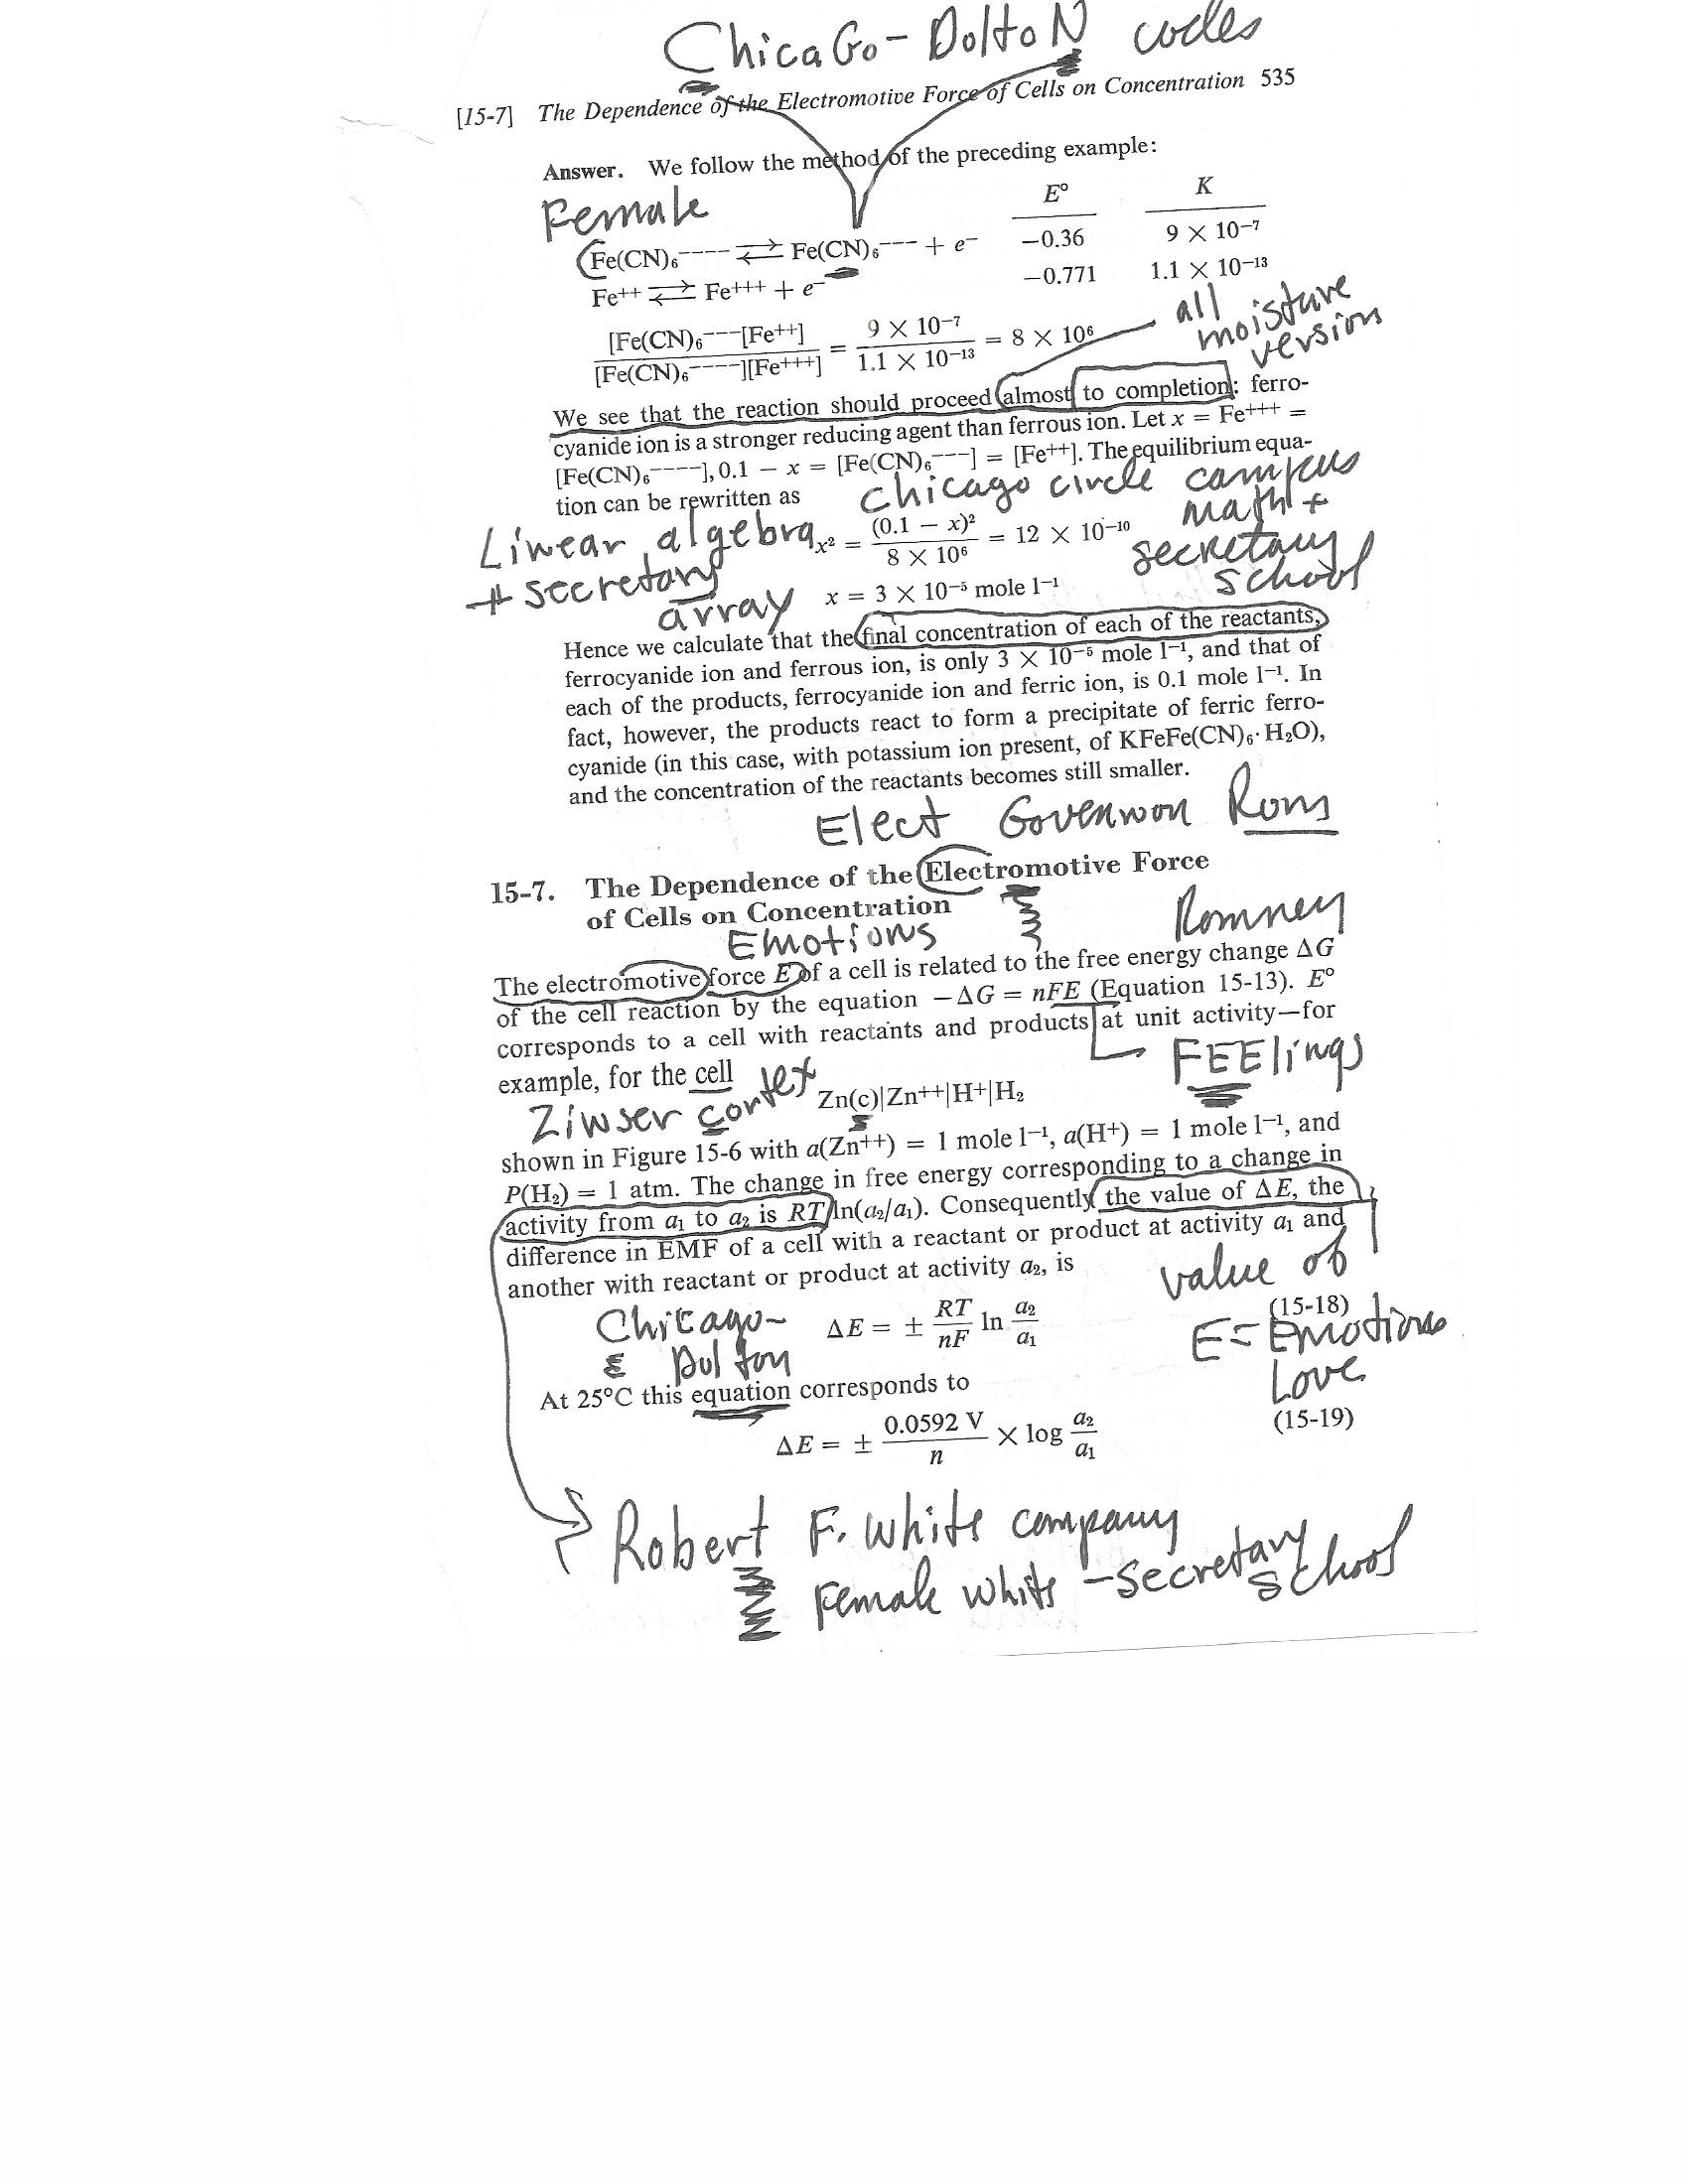 ChicaGo-DoltoN codes
[15-7] The Dependence of the Electromotive Force of Cells on Concentration 535
Answer. We follow the method of the preceding example:
Female
E° K
Fe(CN)₆⁻⁻⁻⁻ ⇄ Fe(CN)₆⁻⁻⁻ + e⁻ −0.36 9 × 10⁻⁷
Fe⁺⁺ ⇄ Fe⁺⁺⁺ + e⁻ −0.771 1.1 × 10⁻¹³
all
moisture
version
[Fe(CN)₆⁻⁻⁻[Fe⁺⁺] / [Fe(CN)₆⁻⁻⁻⁻][Fe⁺⁺⁺] = 9 × 10⁻⁷ / 1.1 × 10⁻¹³ = 8 × 10⁶
We see that the reaction should proceed almost to completion: ferro-
cyanide ion is a stronger reducing agent than ferrous ion. Let x = Fe⁺⁺⁺ =
[Fe(CN)₆⁻⁻⁻⁻], 0.1 − x = [Fe(CN)₆⁻⁻⁻] = [Fe⁺⁺]. The equilibrium equa-
tion can be rewritten as
chicago circle campus
math +
secretary
school
Linear algebra
+ secretary
array
x² = (0.1 − x)² / 8 × 10⁶ = 12 × 10⁻¹⁰
x = 3 × 10⁻⁵ mole l⁻¹
Hence we calculate that the final concentration of each of the reactants,
ferrocyanide ion and ferrous ion, is only 3 × 10⁻⁵ mole l⁻¹, and that of
each of the products, ferrocyanide ion and ferric ion, is 0.1 mole l⁻¹. In
fact, however, the products react to form a precipitate of ferric ferro-
cyanide (in this case, with potassium ion present, of KFeFe(CN)₆·H₂O),
and the concentration of the reactants becomes still smaller.
Elect Rom
15-7. The Dependence of the Electromotive Force
of Cells on Concentration
Emotions
Romney
The electromotive force E of a cell is related to the free energy change ΔG
of the cell reaction by the equation −ΔG = nFE (Equation 15-13). E°
corresponds to a cell with reactants and products at unit activity—for
example, for the cell
FEElings
Zinser cortex
Zn(c)|Zn⁺⁺|H⁺|H₂
shown in Figure 15-6 with a(Zn⁺⁺) = 1 mole l⁻¹, a(H⁺) = 1 mole l⁻¹, and
P(H₂) = 1 atm. The change in free energy corresponding to a change in
activity from a₁ to a₂ is RT ln(a₂/a₁). Consequently the value of ΔE, the
difference in EMF of a cell with a reactant or product at activity a₁ and
another with reactant or product at activity a₂, is
value of
E = Emotions
Love
Chicago-
Dolton
ΔE = ± RT/nF ln a₂/a₁ (15-18)
At 25°C this equation corresponds to
ΔE = ± 0.0592 V/n × log a₂/a₁ (15-19)
Robert F. White company
Female White - secretary
school